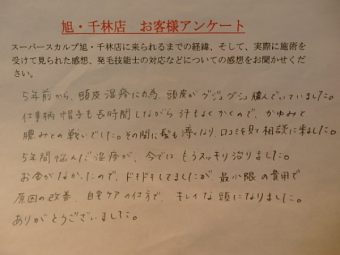 旭・千林店 お客様アンケート
スーパースカルプ旭・千林店に来られるまでの経緯、そして、実際に施術を
受けて見られた感想、発毛技能士の対応などについての感想をお聞かせくだ
さい。
5年前から、頭皮湿疹の為、頭皮がグジュグジュ膿んでいました。
仕事柄帽子も長時間しながら汗もよくかくので、かゆみと
膿みとの戦いでした。その間に髪も薄くなり口コミを見て相談に来ました。
5年間悩んだ湿疹が、今ではもうスッキリ治りました。
お金がなかったので、ドキドキしてましたが 最小限の費用で
原因の改善、自宅ケアの仕方で、キレイな頭になりました。
ありがとうございました。